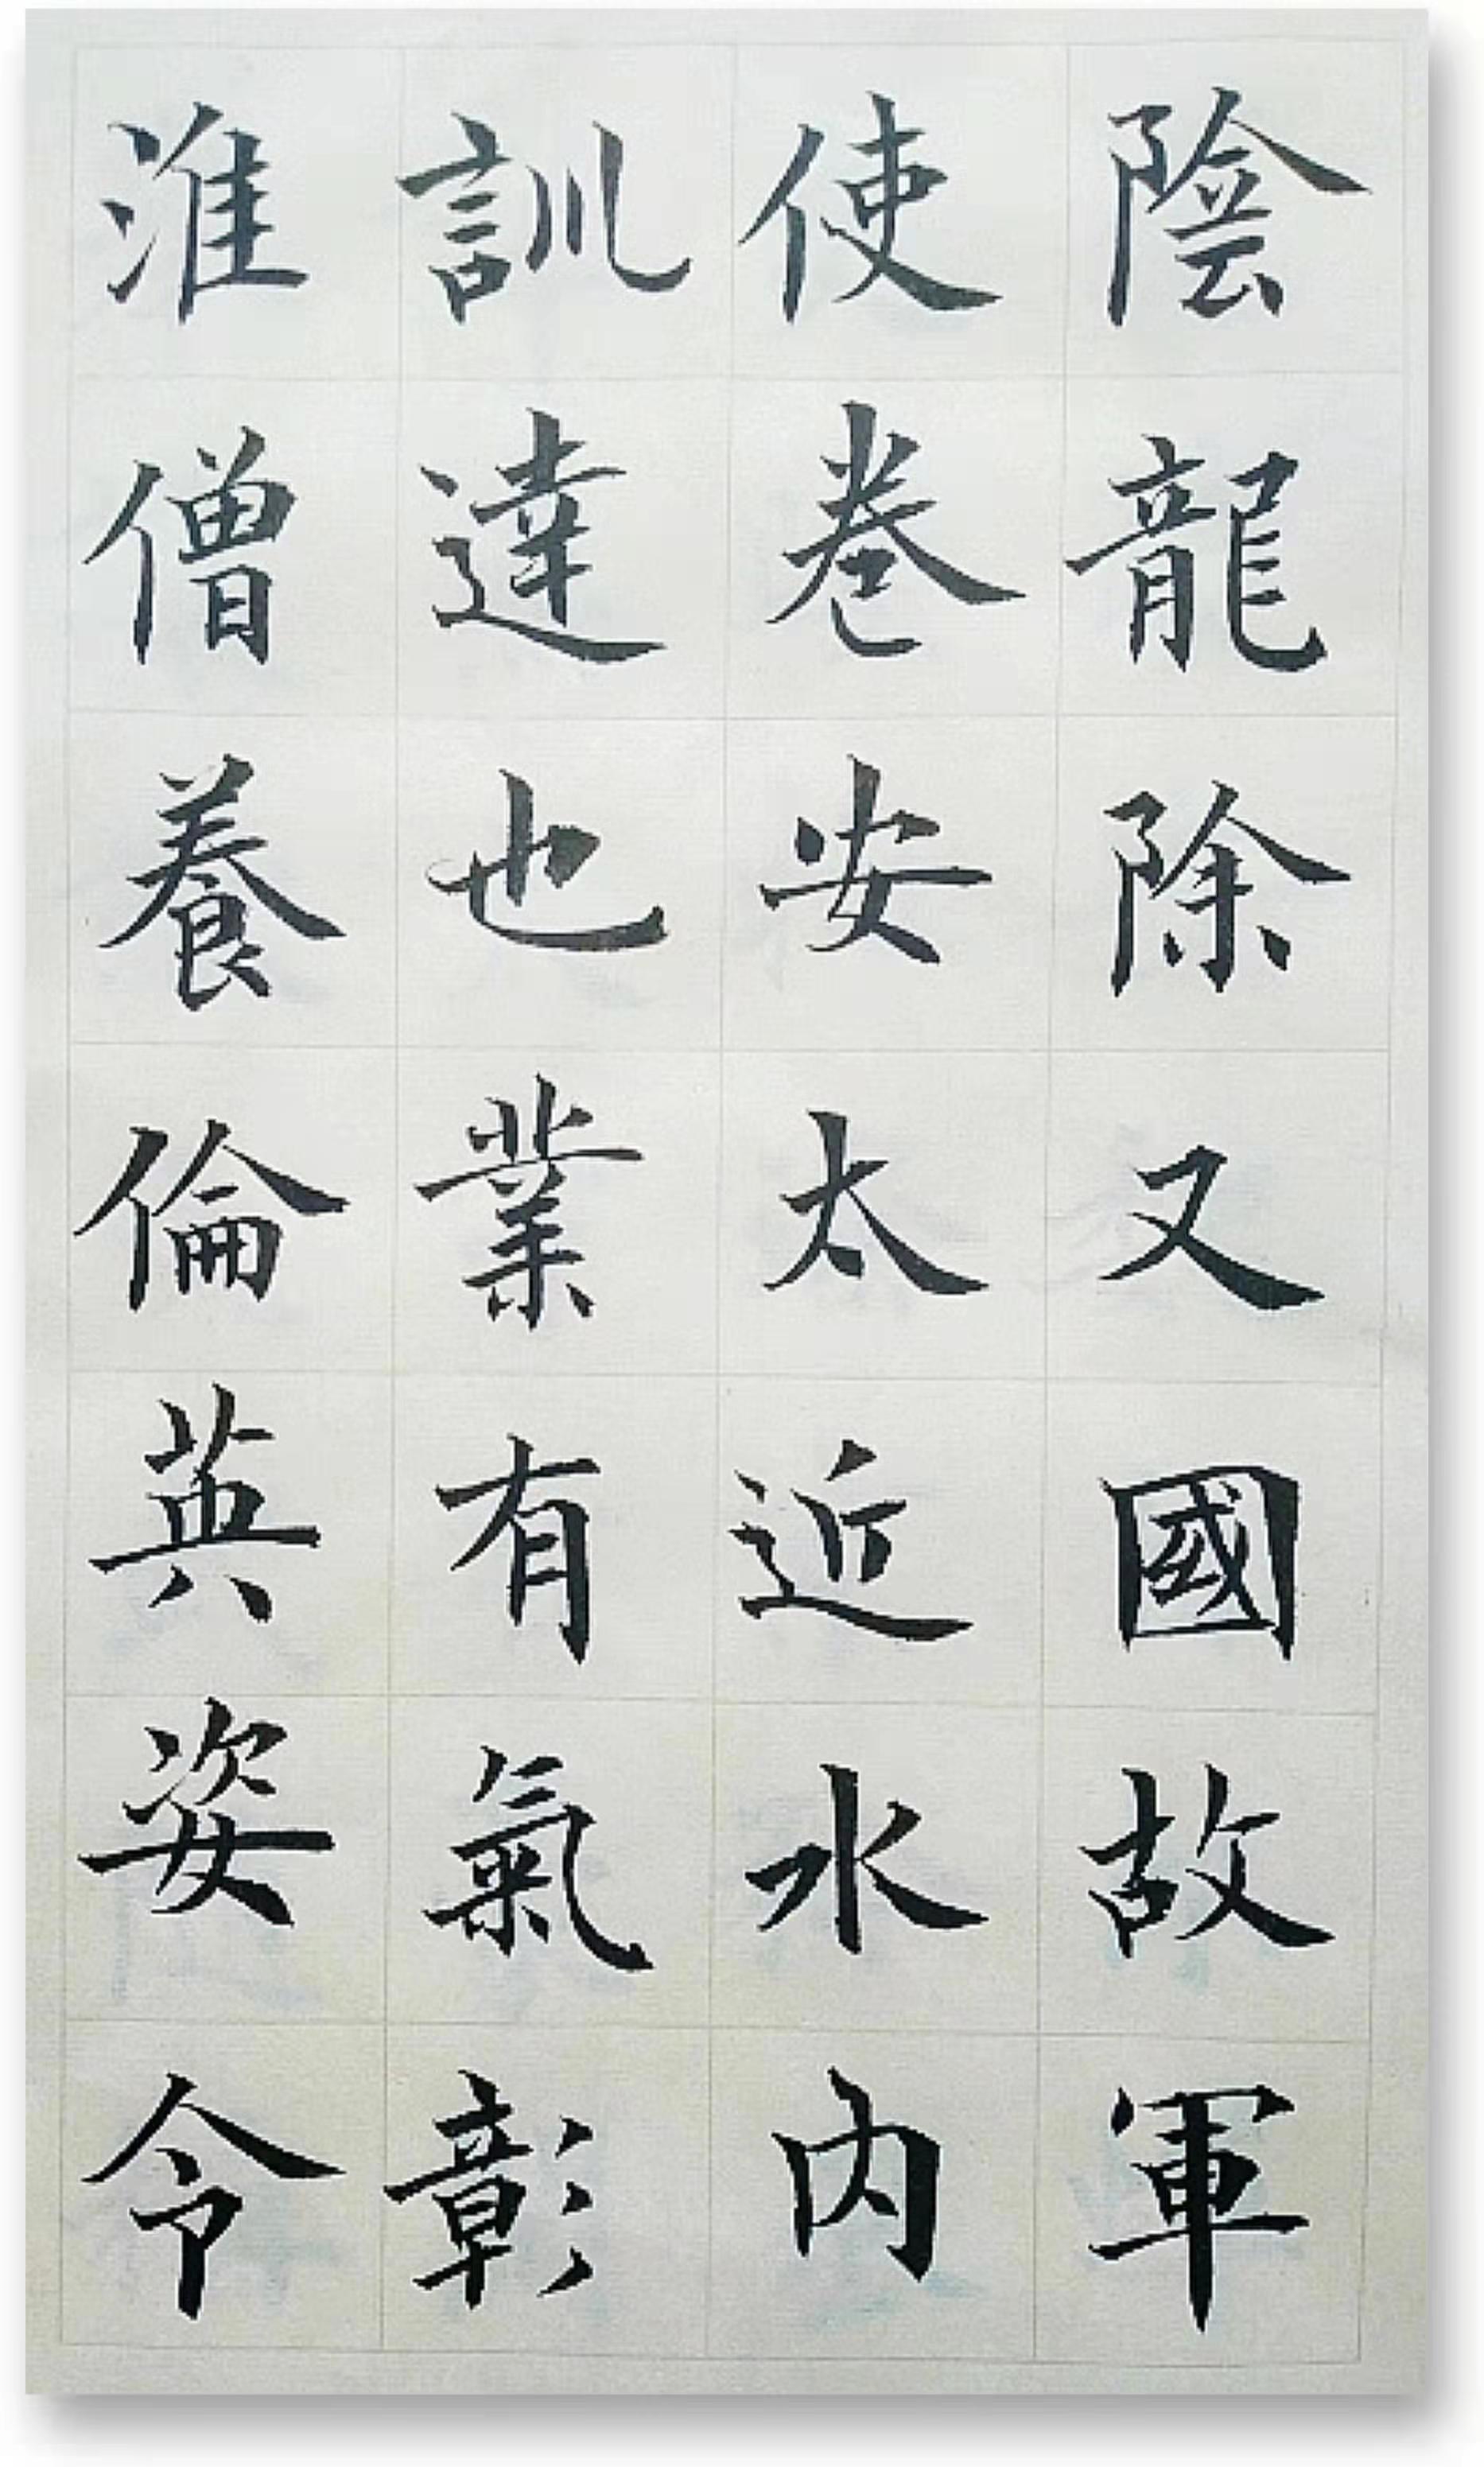 陰龍除又國故軍
使卷安太近水內
訓達也業有氣彰
淮僧養倫英姿令